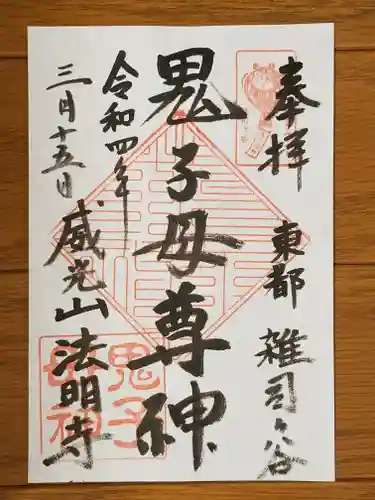 奉拝
東都 雑司ケ谷
鬼子母尊神
令和四年
三月十五日
威光山 法明寺
鬼子
母神